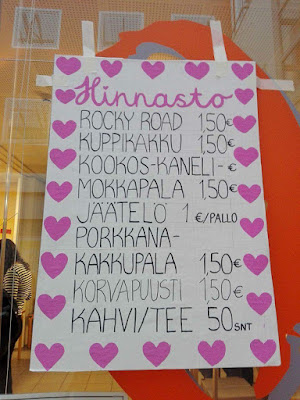 Hinnasto
ROCKY ROAD 1,50€
KUPPIKAKKU 1,50€
KOOKOS-KANELI- €
MOKKAPALA 1,50€
JÄÄTELÖ 1 €/PALLO
PORKKANA-
KAKKUPALA 1,50€
KORVAPUUSTI 1,50€
KAHVI/TEE 50 SNT